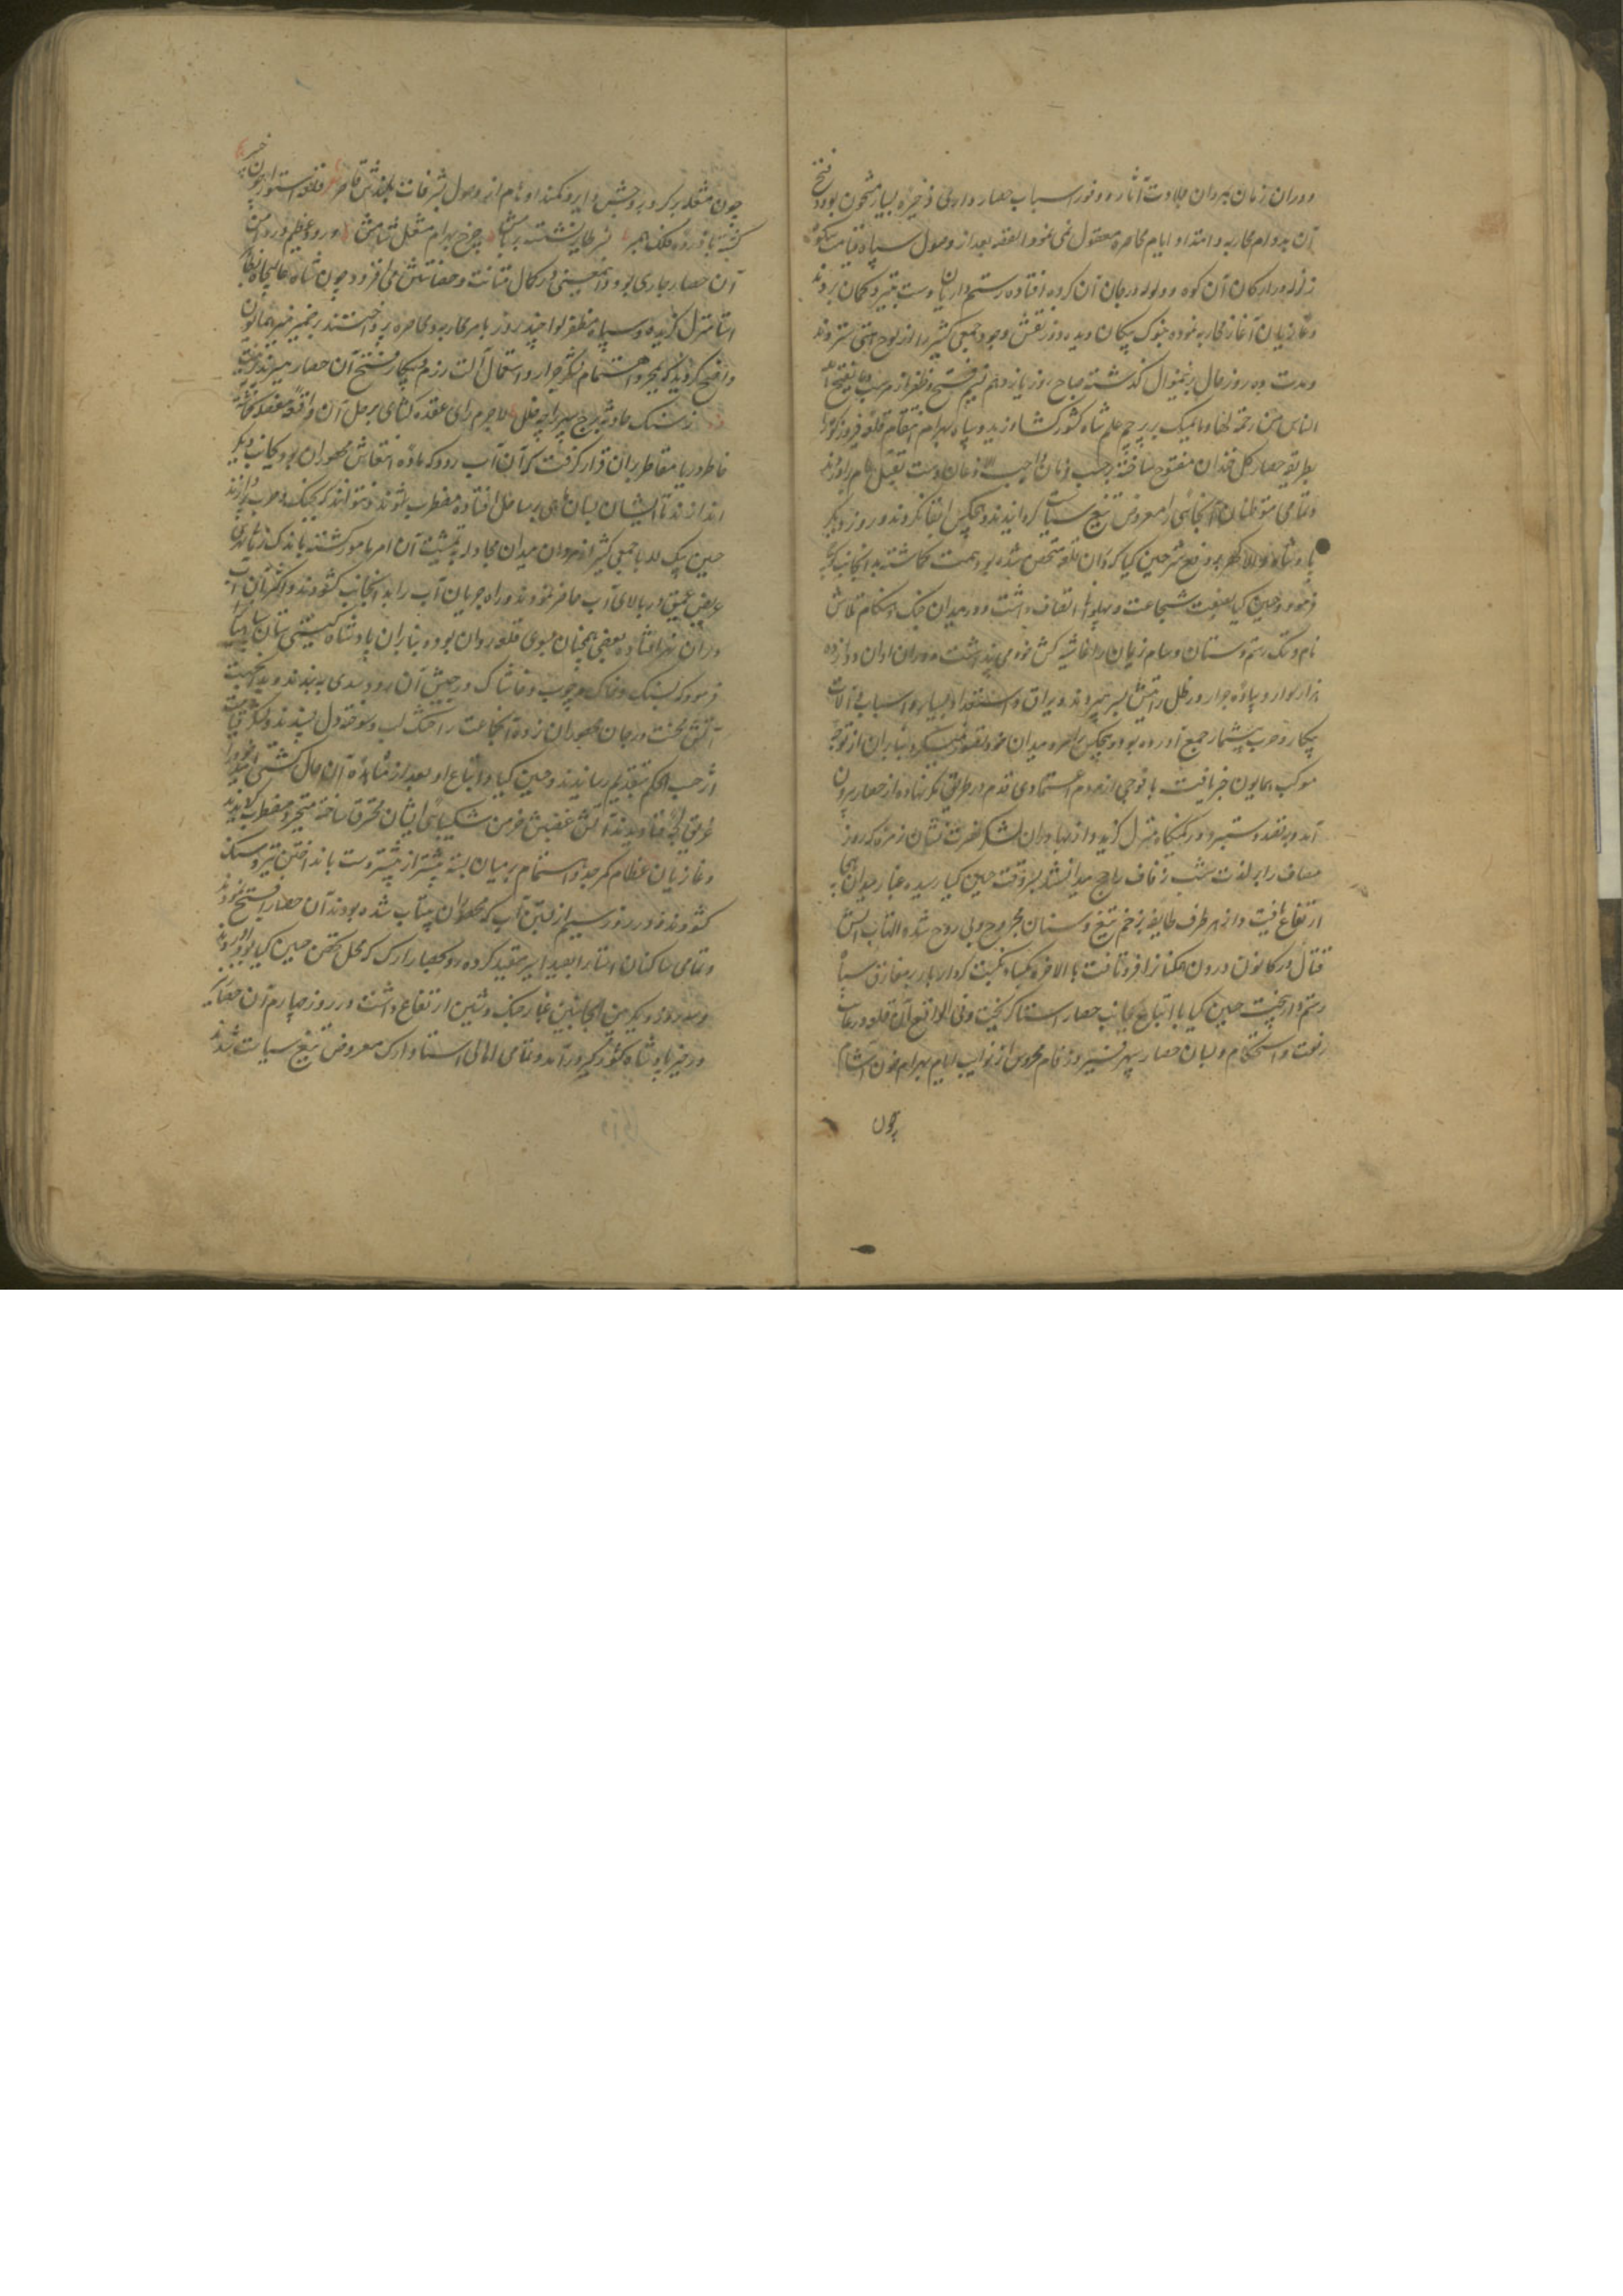 و در آن زمان بمردان جلادت آثار و وفور اسباب حصارداری و ذخیره بسیار مشحون بود و فتح
آن بدوام محاربه و امتداد ایام محاصره معقول نمی نمود القصه بعد از وصول سپاه قیامت شکوه
زلزله در ارکان آن کوه و ولوله در جان آن گروه افتاده رستم داریان دست بتیر و کمان بردند
و غازیان آغاز محاربه نموده بنوک پیکان دیده دوز نقش وجود جمعی کثیر را از لوح هستی ستردند
و مدت ده روز حال برینمنوال گذشته صباح روز یازدهم نسیم فتح و ظفر از مهب ما یفتح الله
للناس من رحمة فلا ممسک لها بر پرچم علم شاه کشورگشا وزید و سپاه بهرام انتقام قلعه فیروزکوه را
بطریق حصار گل خندان مفتوح ساخته بر حسب فرمان واجب الاذعان دست بقتل عام برآوردند
و تمامی متوطنان آنجائی را معروض تیغ سیاست گردانیدند و بهیچکس ابقا نکردند و روز دیگر
پادشاه والا گهر بدفع شر حسین کیا که در آن قلعه متحصن شده بود همت گماشته بدانجانب نهضت
فرمود و حسین کیا بصفت شجاعت و پهلوانی اتصاف داشت و در میدان جنگ و هنگام تلاش
نام و ننگ رستم دستان و سام نریمان را غاشیه کش خود می پنداشت و در آن اوان دوازده
هزار سوار و پیاده جرار در ظل رایتش بسر میبردند و یراق و استعداد بسیار و اسباب و آلات
پیکار و حرب بیشمار جمع آورده بود و هیچکس را مرد میدان خود تصور نمیکرد بنابران از توجه
موکب همایون خبر یافت با فوجی از مردم اعتمادی قدم در طریق تکبر نهاده از حصار بیرون
آمد و بقصد دستبرد در کمینگاه منزل گزید و از بهادران لشکر نصرت نشان زمره که روز
مصاف را بر لذت شب زفاف راجح میدانستند بسروقت حسین کیا رسیده غبار میدان هیجا
ارتفاع یافت و از هر طرف طایفه بزخم تیغ و سنان مجروح و بی روح شده التهاب آتش
قتال در کانون درون همکنان افروختن یافت بالاخره گیاه نکبت کردار بار بمفارق سپاه
رستمدار بیخت حسین کیا با اتباع بجانب حصار استا گریخت و فی الواقع آن قلعه در غایت
رفعت و استحکام و بسان حصار سپهر فیروزه فام محروس از نوایب ایام بهرام خون آشام
چون
چون متقلد بر کرد بروجش دایر و کمند اوهام از وصول بشرفات بلندش قاصر قلعه استوار چون چرخ
کشیده باز دروه فلک همبر نسر طایر نشسته بر بامش چرخ بهرام مقبل شامش و رود عظیم در دامن
آن حصار جاری بود و این معنی در کمال متانت و حصانتش می افزود چون شاه عالیجاه در ظاهر
استا منزل گزیده و سپاه مظفر لوا چند روز بامر محاربه و محاصره پرداختند بر ضمیر منیر همایون
واضح گردید که بمجرد اهتمام لشکر جرار و استعمال آلت رزم و پیکار فتح آن حصار میسر نمیشود
ز سنگ حادثه برج سپهر را چه خلل لاجرم رای عقده گشای بر حل آن واقعه معضله گماشته
خاطر دریا مقاطر بران قرار گرفت که آن آب رود که ماده انتعاش محصوران بود بجانب دیگر
اندازند تا ایشان بسان ماهی بر ساحل افتاده مضطرب شوند و نتوانند که بجنگ و حرب پردازند
حسین بیک لله با جمعی کثیر از مردان میدان مجادله بتمشیت آن امر مامور گشته باندک زمانی نهری
عریض عمیق در بالای آب حفر نمودند و راه جریان آب را بدانجانب گشودند و اکثر آن آب
در آن نهر افتاده بعضی همچنان بسوی قلعه روان بوده بنابران پادشاه گیتی ستان
فرمود که بسنگ و خاک و چوب و خاشاک در پیش آن رود سدی به بندند و بدین جهت
آتش محنت در جان محصوران زده آنجماعت را خشک لب و سوخته دل پسندند و لشکر قیامت
اثر حسب الحکم بتقدیم رسانیدند و حسین کیا و اتباع او بعد از مشاهده آن حال کشتی امید خود را
غریق لجه فنا دیدند و آتش عطش خرمن شکیبائی ایشان محترق ساخته متحیر و مضطرب گردیدند
و غازیان عظام کمر جد و اهتمام بر میان بسته بیشتر از پیشتر دست بانداختن تیر و سنگ
گشودند و در روز سیم از بستن آب که محصوران بیتاب شده بودند آن حصار را فتح نمودند
و تمامی ساکنان استا را بقید اسیر مقید کرده رو بحصار ارک که محل تحصن حسین کیا بود آوردند
و سه روز دیگر من الجانبین غبار جنگ و شین ارتفاع داشت و در روز چهارم آن حصار نیز
در حیز پادشاه کشورگیر درآمد و تمامی اهالی استا و ارک معروض تیغ سیاست شدند